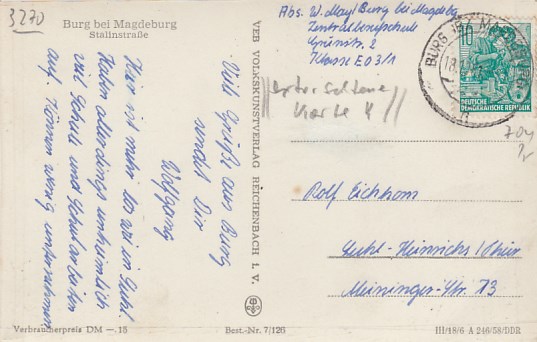 3270
Burg bei Magdeburg
Stalinstraße
Abs. W. May, Burg bei Magdebg
Zentralberufsschule
Grünstr. 2
Klasse E 03/1
BURG (BZ MAGDEBURG)
10
DEUTSCHE
DEMOKRATISCHE REPUBLIK
Karte
Hier ist mehr los wie in Suhl
Haben allerdings unheimlich
viel Schule und Schularbeiten
auf. Können wenig unternehmen
Viele Grüße aus Burg
sendet Dir
Wolfgang
VEB VOLKSKUNSTVERLAG REICHENBACH I. V.
Rolf Eichhorn
Suhl-Heinrichs/Thür
Meininger-Str. 73
Verbraucherpreis DM —.18
Best.-Nr. 7/126
III/18/6 A 246/58/DDR